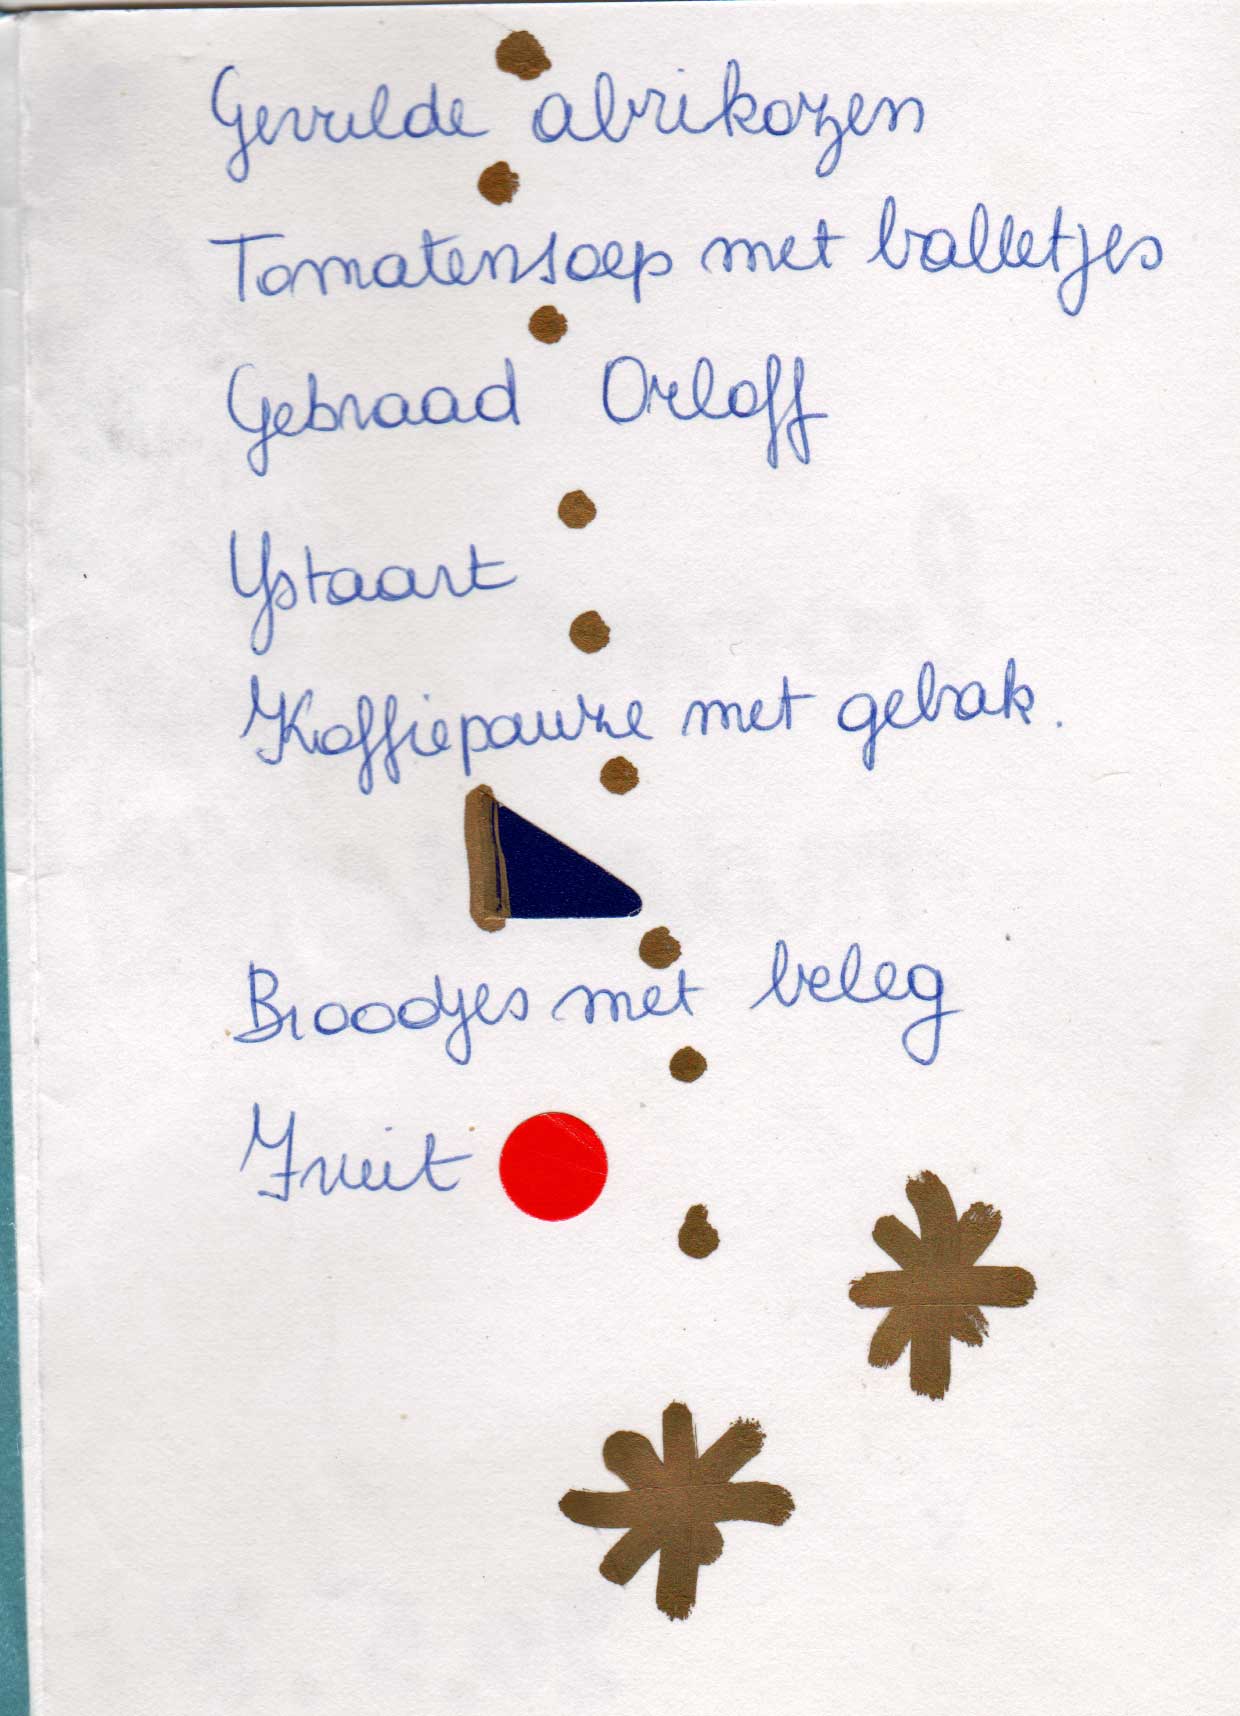 Gevulde abrikozen
Tomatensoep met balletjes
Gebraad Orloff
Ystaart
Koffiepauze met gebak.
Broodjes met beleg
Fruit